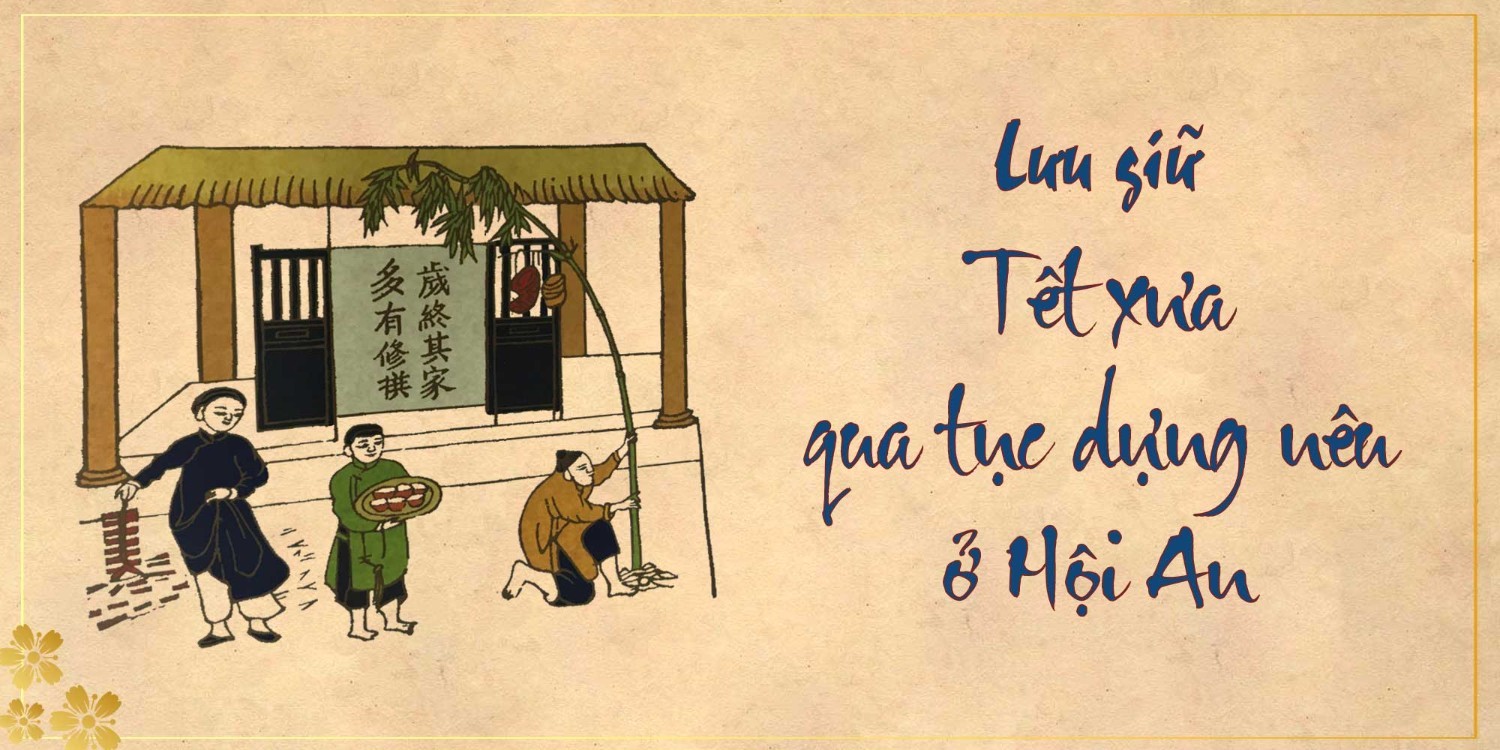 歲終其家
多有修拱
Lưu giữ
Tết xưa
qua tục dựng nêu
ở Hội An